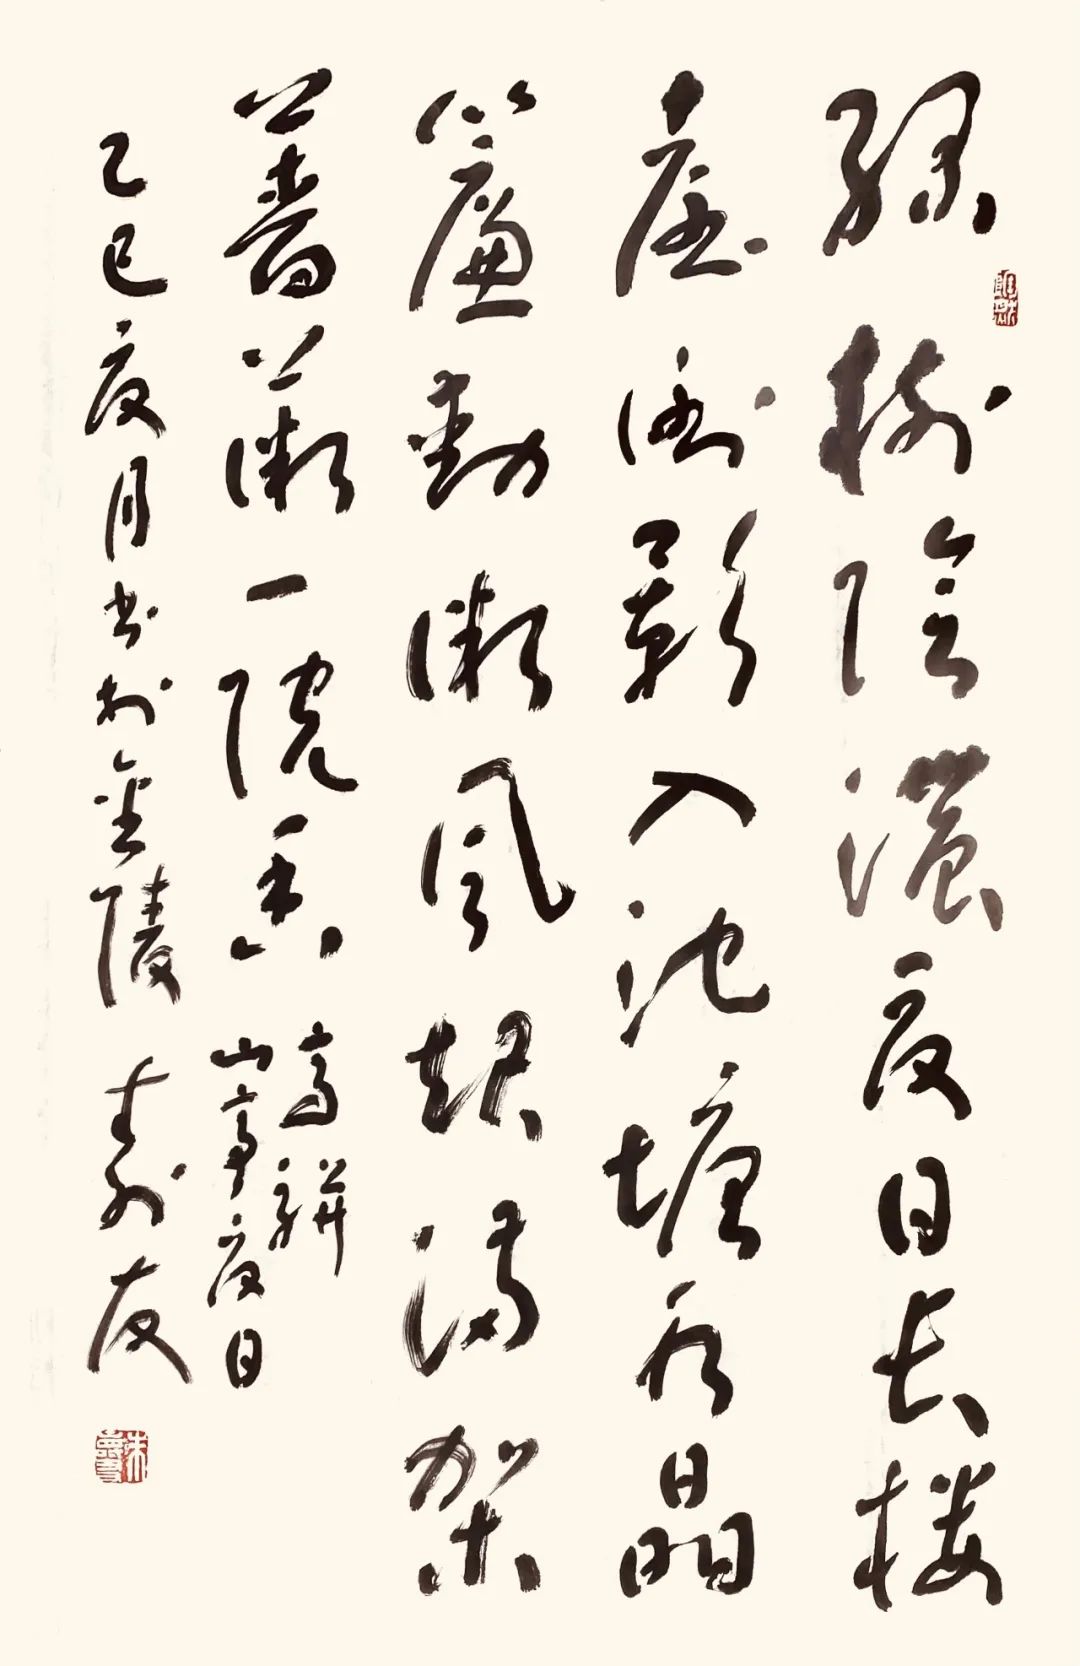 緑樹陰濃夏日長楼
臺倒影入池塘水晶
簾動微風起満架
薔薇一院香
高駢
山亭夏日
乙巳夏月书於金陵 寿友
朱寿